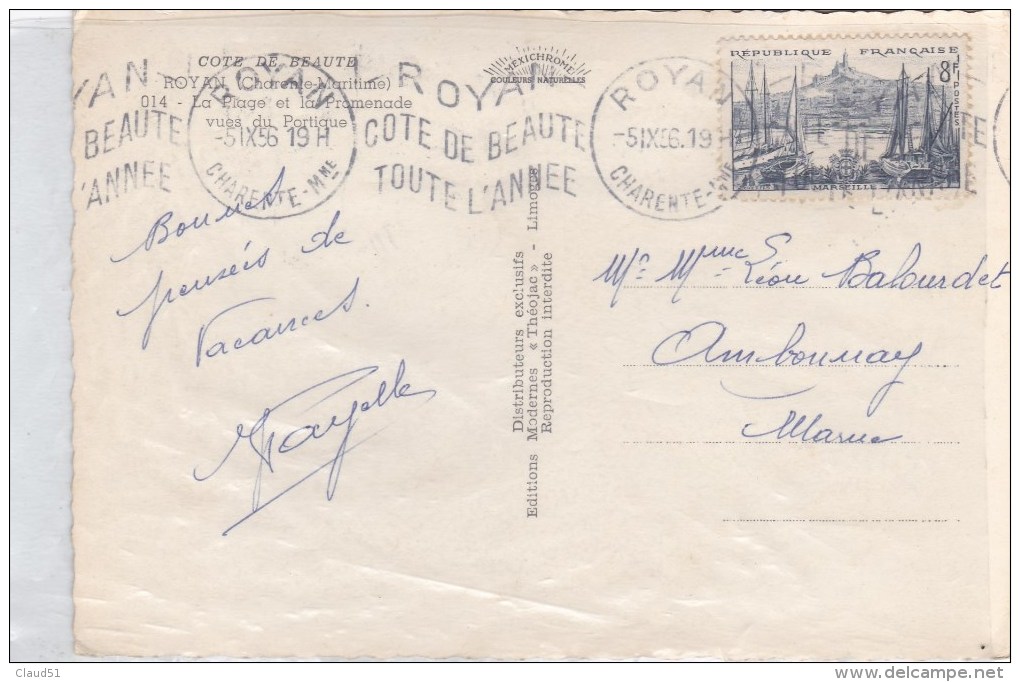 COTE DE BEAUTE
ROYAN (Charente-Maritime)
014 - La Plage et la Promenade
vues du Portique
MEXICHROME
COULEURS NATURELLES
YAN
BEAUTE
L'ANNEE
ROYAN
-5 IX 56 19 H
CHARENTE-MME
ROYAN
COTE DE BEAUTE
TOUTE L'ANNEE
ROYAN
-5 IX 56. 19 H
CHARENTE-MME
RÉPUBLIQUE FRANÇAISE
8F
POSTES
MARSEILLE
Bonnes
pensées de
Vacances.
Distributeurs exclusifs
Editions Modernes « Théojac » - Limoges
Reproduction interdite
Mr Mme Léon Balourdet
Ambonnay
Marne
Claud51
www.delcampe.net